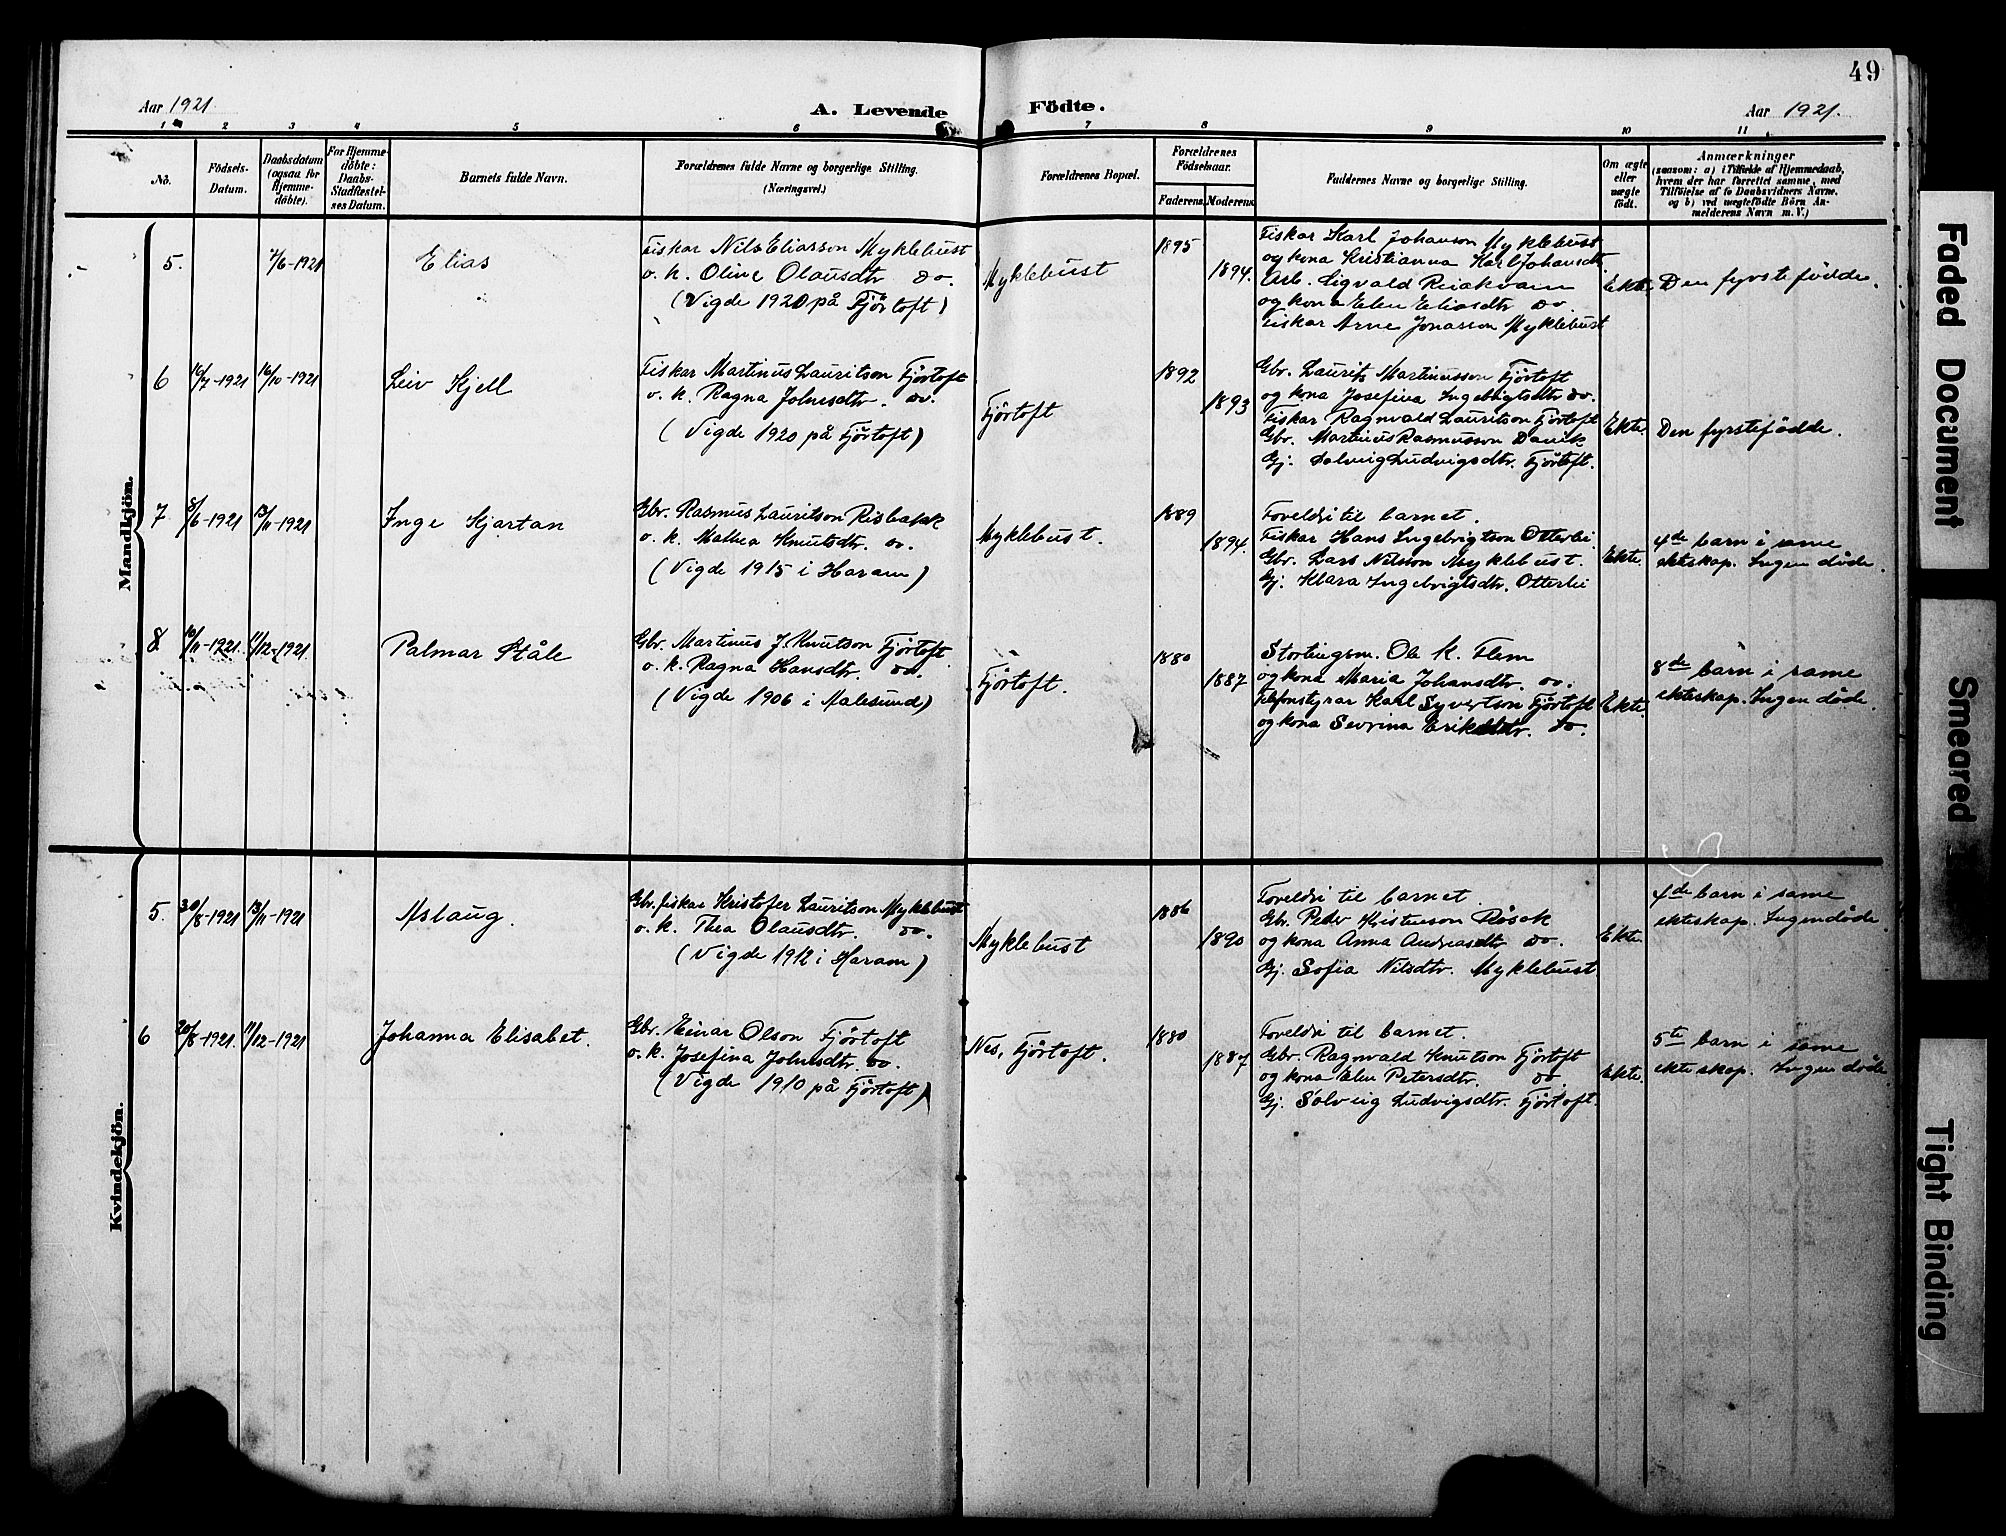 49
Aar 1921
A. Levende Födte.
Aar 1921.
1 2 3 4 5 6 7 8 9 10 11
No.
Födsels-Datum.
Daabsdatum (ogsaa for Hjemme-döbte).
For Hjemme-döbte: Daabs-Stadfæstel-ses Datum.
Barnets fulde Navn.
Forældrenes fulde Navne og borgerlige Stilling. (Næringsvei.)
Forældrenes Bopæl.
Forældrenes Födselsaar.
Faderens Moderens
Faddernes Navne og borgerlige Stilling.
Om ægte eller uægte födt.
Anmærkninger
(saasom: a) i Tilfælde af Hjemmedaab,
hvem der har forrettet samme, med
Tilföielse af to Daabsvidners Navne,
og b) ved uægtefödte Börn An-
melderens Navn m. V.)
Mandkjön.
5. 7/6-1921 Elias
Fiskar Nils Eliasson Myklebust
o. k. Oline Olausdtr do.
(Vigde 1920 på Fjörtoft)
Myklebust
1895
1894.
Fiskar Karl Johanson Myklebust
og kona Kristianna Karl Johansdtr.
Arb. Sigvald
og kona Elen Eliasdtr do
Fiskar Arne Jonasson Myklebust
Ekte. Den fyrstefödde.
6 16/7-1921 16/10-1921 Leiv Kjell
Fiskar Martinus Lauritson Fjörtoft
o. k. Ragna Johnsdtr. do.
(Vigde 1920 på Fjörtoft)
Fjörtoft
1892
1893
Gbr. Laurits Martinusson Fjörtoft
og kona Josefina Ingebrigtsdtr do.
Fiskar Ragnvald Lauritson Fjörtoft
Gbr. Martinus Rasmusson
Gj. Solveig Ludvigsdtr. Fjörtoft.
Ekte. Den fyrstefödde.
7 8/6-1921 13/11-1921 Inge Kjartan
Gbr. Rasmus Lauritson Risbakk
o. k. Mathea Knutsdtr. do.
(Vigde 1915 i Haram)
Myklebust.
1889
1894.
Foreldri til barnet.
Fiskar Hans Ingebrigtson Otterlei.
Gbr. Lars Nilsson Myklebust.
Gj. Klara Ingebrigtsdtr. Otterlei
Ekte.
4de barn i same
ekteskap. Ingen döde.
8 10/11-1921. 11/12-1921. Palmar Ståle
Gbr. Martinus J. Knutson Fjörtoft
o. k. Ragna Hansdtr. do.
(Vigde 1906 i Aalesund)
Fjörtoft.
1880
1887
Stortingsm. Ole K. Flem
og kona Maria Johansdtr. do.
Telefonstyrar Karl Syvertson Fjörtoft
og kona Sevrina Eriksdtr. do.
Ekte.
8de barn i same
ekteskap. Ingen döde.
Kvindekjön.
5. 30/8-1921 13/11-1921 Aslaug.
Gbr. fiskar Kristofer Lauritson Myklebust
o. k. Thea Olausdtr. do.
(Vigde 1912 i Haram)
Myklebust
1886
1890
Foreldri til barnet.
Gbr. Peder Kistenson Rösok
og kona Anna Andreasdtr do.
Gj. Sofia Nilsdtr. Myklebust.
Ekte.
4de barn i same
ekteskap. Ingen döde
6 20/8-1921. 11/12-1921 Johanna Elisabet.
Gbr. Einar Olson Fjörtoft
o. k. Josefina Johnsdtr. do.
(Vigde 1910 på Fjörtoft)
Nes, Fjörtoft.
1880
1887
Foreldri til barnet.
Gbr. Ragnvald Knutson Fjörtoft
og kona Elen Petersdtr. do
Gj. Solveig Ludvigsdtr. Fjörtoft.
Ekte.
5te barn i same
ekteskap. Ingen döde.
Faded Document
Smeared
Tight Binding